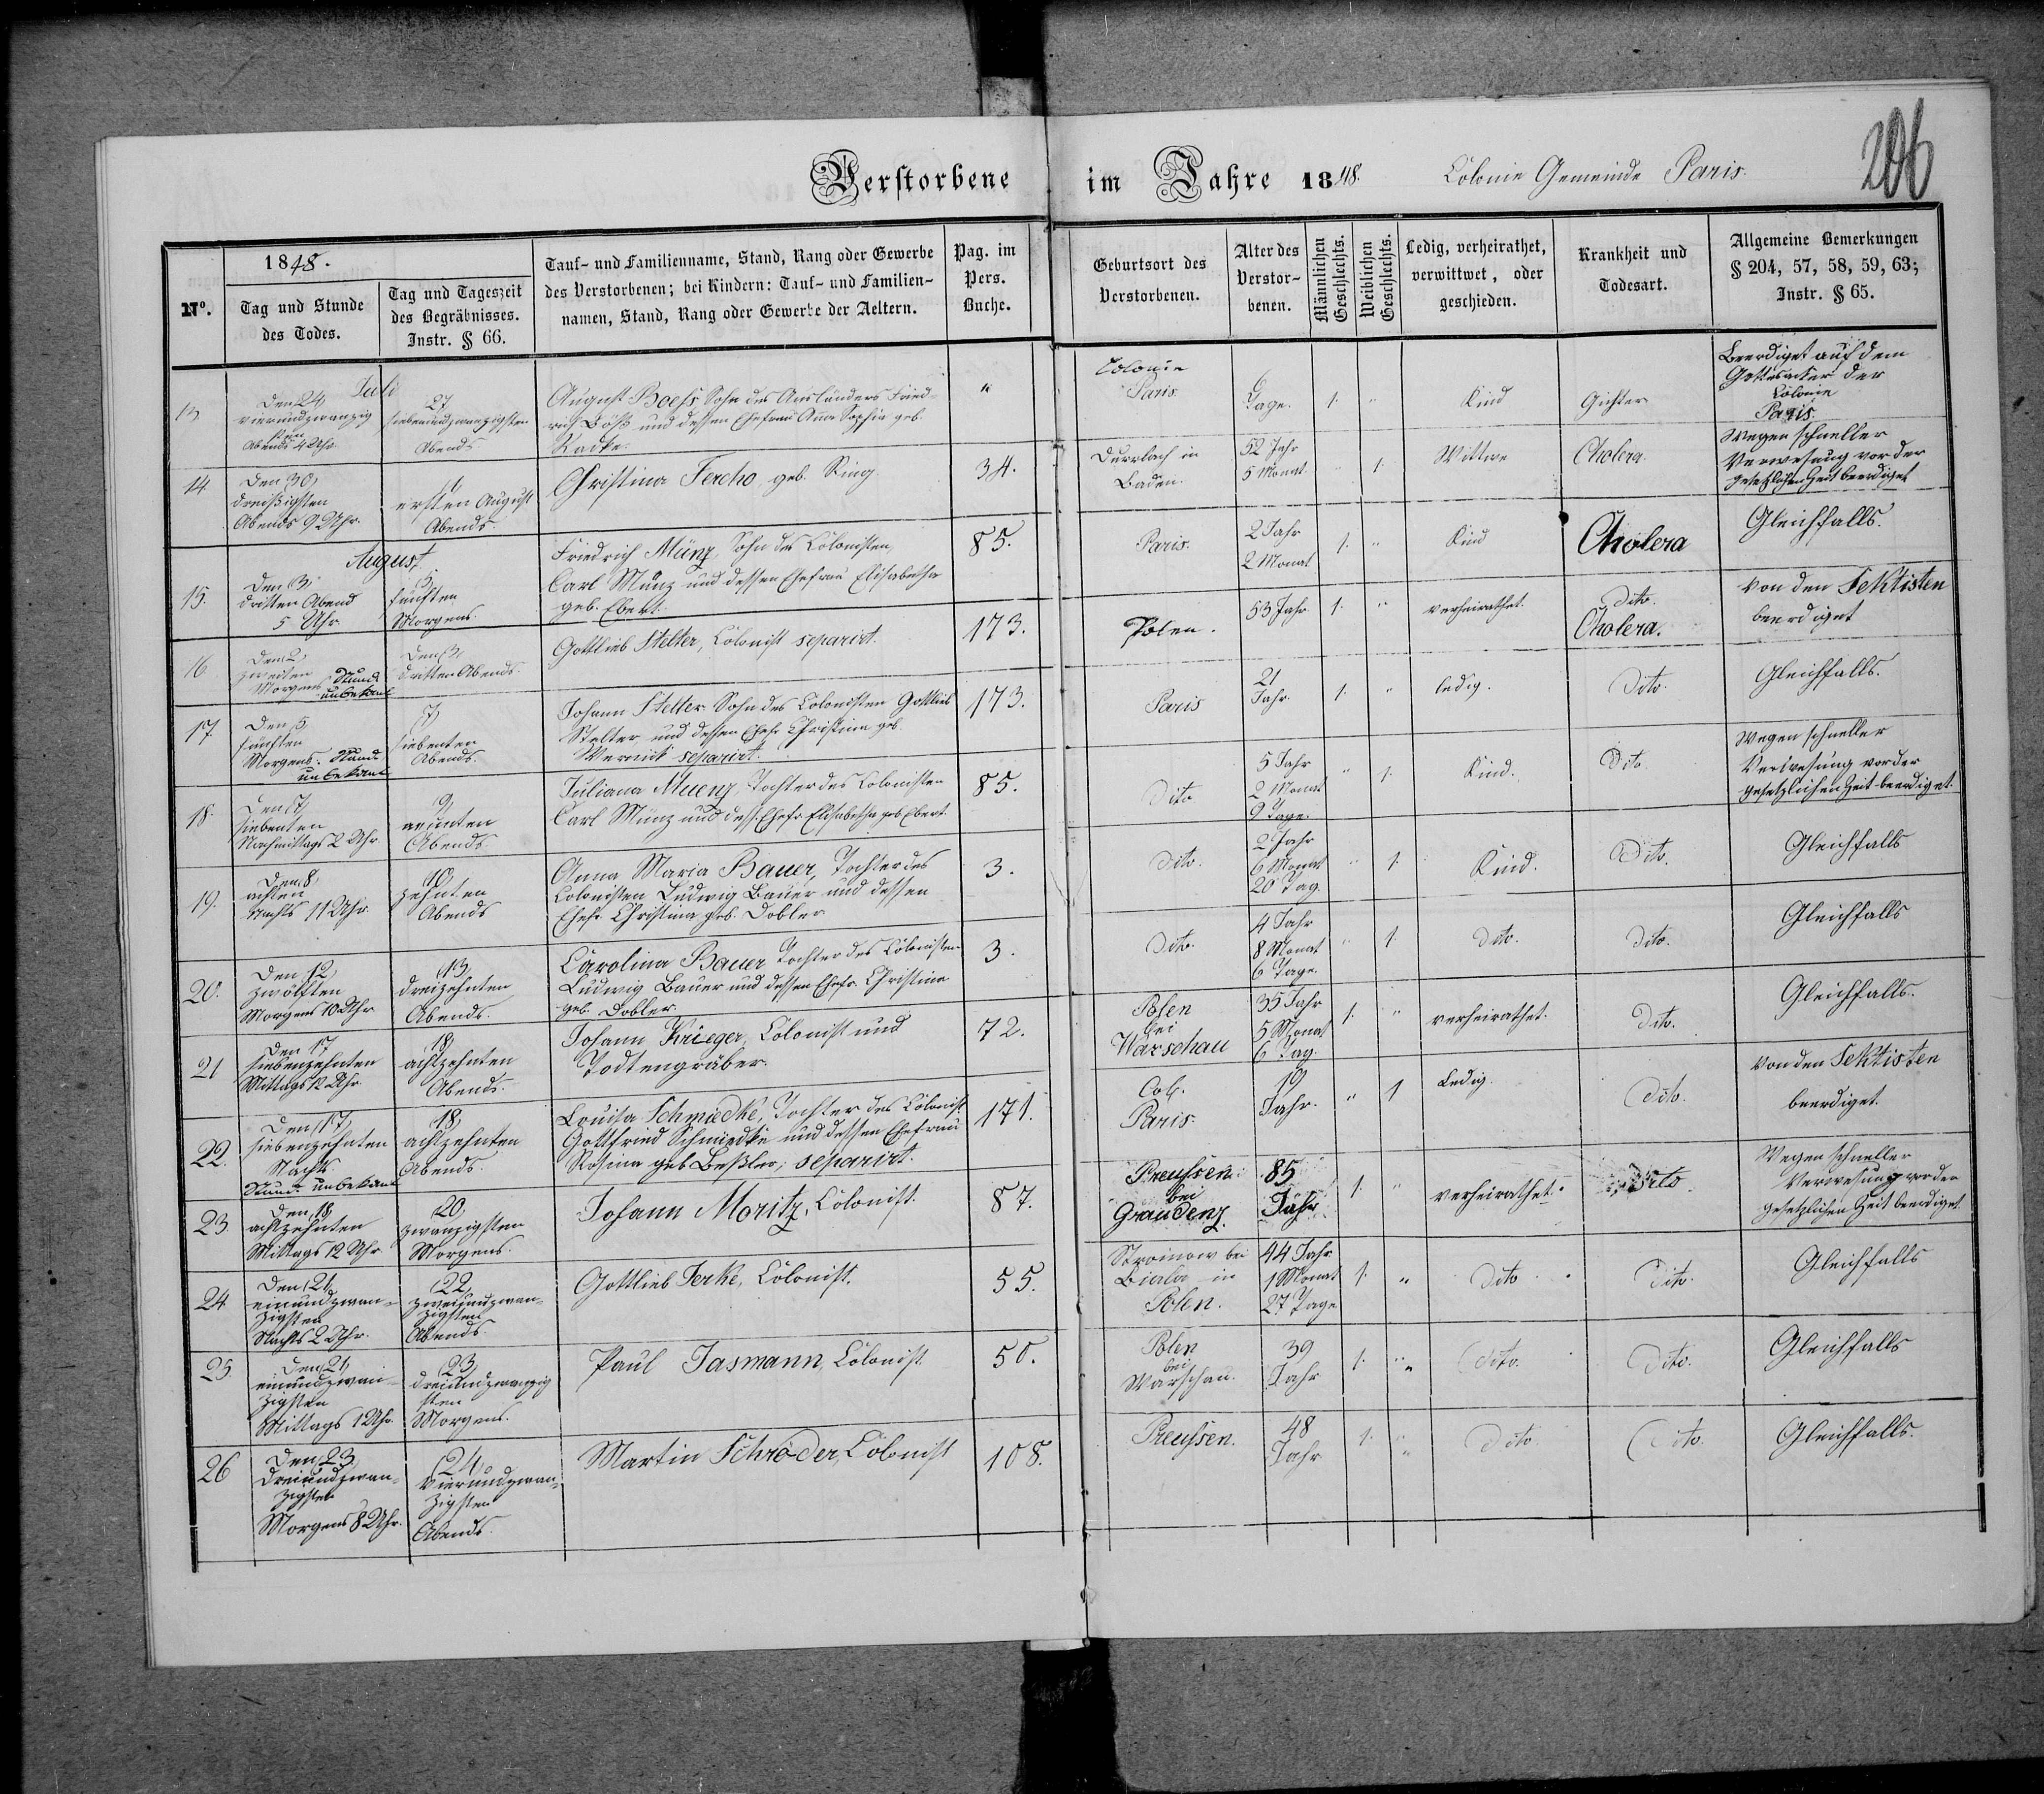 206
Verstorbene im Jahre 1848. Colonie Gemeinde Paris.
Nº.
1848.
Tag und Stunde
des Todes.
Tag und Tageszeit
des Begräbnisses.
Instr. § 66.
Tauf- und Familienname, Stand, Rang oder Gewerbe
des Verstorbenen; bei Kindern: Tauf- und Familien-
namen, Stand, Rang oder Gewerbe der Aeltern.
Pag. im
Pers.
Buche.
Geburtsort des
Verstorbenen.
Alter des
Verstor-
benen.
Männlichen
Geschlechts.
Weiblichen
Geschlechts.
Ledig, verheirathet,
verwittwet, oder
geschieden.
Krankheit und
Todesart.
Allgemeine Bemerkungen
§ 204, 57, 58, 59, 63;
Instr. § 65.
Juli
13
Den 24,
vierundzwanzig
sten
Abends 4 Uhr.
27
siebenundzwanzigsten
Abends
August Boess Sohn des Ausländers Fried-
rich Böß und dessen Ehefrau Anna Sophia geb.
Radke.
"
Colonie
Paris.
6
Tage.
1.
"
Kind
Gichter
Beerdiget auf dem
Gottesacker der
Colonie
Paris.
14.
Den 30,
dreißigsten
Abends 9 Uhr.
1,
ersten August
Abends.
Christina Fercho, geb. Ring.
34.
Durrlach in
Baden.
52 Jahr
5 Monat.
"
1.
Wittwe
Cholera.
Wegen schneller
Verwesung vor der
gesetzlichen Zeit beerdiget
August
15.
Den 3,
dritten Abend
5 Uhr
5,
fünften
Morgens.
Friedrich Münz, Sohn des Colonisten,
Carl Münz und dessen Ehefrau Elisabetha
geb. Ebert.
85.
Paris.
2 Jahr
2 Monat
1.
"
Kind
Cholera
Gleichfalls.
16
Den 2,
zweiten
Morgens Stund.
unbekant
Den 3,
dritten Abends.
Gottlieb Stelter, Colonist separirt.
173.
Polen.
53 Jahr.
1.
"
verheirathet.
Dito.
Cholera.
Von den Sektisten
beerdiget
17.
Den 5,
fünften
Morgens. Stund
unbekant
7,
siebenten
Abends.
Johann Stelter Sohn des Colonisten Gottlieb
Stelter und dessen Ehefr. Christina geb.
separirt.
173.
Paris
21
Jahr.
1.
"
ledig.
Dito.
Gleichfalls.
18.
Den 7,
siebenten
Nachmittags 2 Uhr
9,
neunten
Abends.
Juliana Muenz, Tochter des Colonisten
Carl Münz und dess. Ehefr. Elisabetha geb. Ebert.
85.
Dito
5 Jahr
2 Monat
9 Tage.
"
1.
Kind.
Dito.
Wegen schneller
Verwesung vor der
gesetzlichen Zeit beerdiget.
19.
Den 8,
achten
Nachts 11 Uhr.
10,
zehnten
Abends
Anna Maria Bauer, Tochter des
Colonisten Ludwig Bauer und dessen
Ehefr. Christina geb. Dobler
3.
Dito.
2 Jahr
6 Monat
20 Tag.
"
1.
Kind.
Dito.
Gleichfalls
20.
Den 12,
zwölften
Morgens 10 Uhr
13,
dreizehnten
Abends.
Carolina Bauer, Tochter des Colonisten
Ludwig Bauer und dessen Ehefr. Christina
geb. Dobler.
3.
Dito.
4 Jahr
8 Monat
6 Tage.
"
1.
Dito.
Dito.
Gleichfalls
21
Den 17
siebenzehnten
Mittags 12 Uhr.
18,
achtzehnten
Abends.
Johann Krieger, Colonist und
Todtengräber.
72.
Polen
bei
Warschau
35 Jahr
5 Monat
6 Tag.
1.
"
verheirathet.
Dito.
Gleichfalls.
22.
Den 17,
siebenzehnten
Nachts
Stund. unbekant
18,
achtzehnten
Abends.
Louisa Schmiedke, Tochter des Colonist.
Gottfried Schmiedke und dessen Ehefrau
Rosina geb. Beßler; separirt.
171.
Col.
Paris.
19
Jahr.
"
1
Ledig.
Dito.
Von den Sektisten
beerdiget.
23.
Den 18,
achtzehnten
Mittags 12 Uhr
20,
zwanzigsten
Morgens.
Johann Moritz, Colonist.
87.
Preussen.
bei
Graudenz.
85
Jahr.
1.
"
verheirathet.
Dito
Wegen schneller
Verwesung vor der
gesetzlichen Zeit beerdiget
24.
Den 21,
einundzwan-
zigsten
Nachts 2 Uhr.
22,
zweiundzwan-
zigsten
Abends
Gottlieb Jerke, Colonist.
55.
bei
Biala in
Polen.
44 Jahr
1 Monat
27 Tage
1.
"
Dito
Dito.
Gleichfalls
25.
Den 21,
einundzwan-
zigsten
Mittags 1 Uhr.
23,
dreiundzwanzig
sten
Morgens.
Paul Jasmann, Colonist
50.
Polen
bei
Warschau.
39
Jahr
1.
"
Dito.
Dito.
Gleichfalls
26
Den 23,
dreiundzwan-
zigsten
Morgens 8 Uhr.
24,
vierundzwan-
zigsten
Abends.
Martin Schröder, Colonist
108.
Preussen.
48
Jahr
1.
"
Dito
Dito.
Gleichfalls.